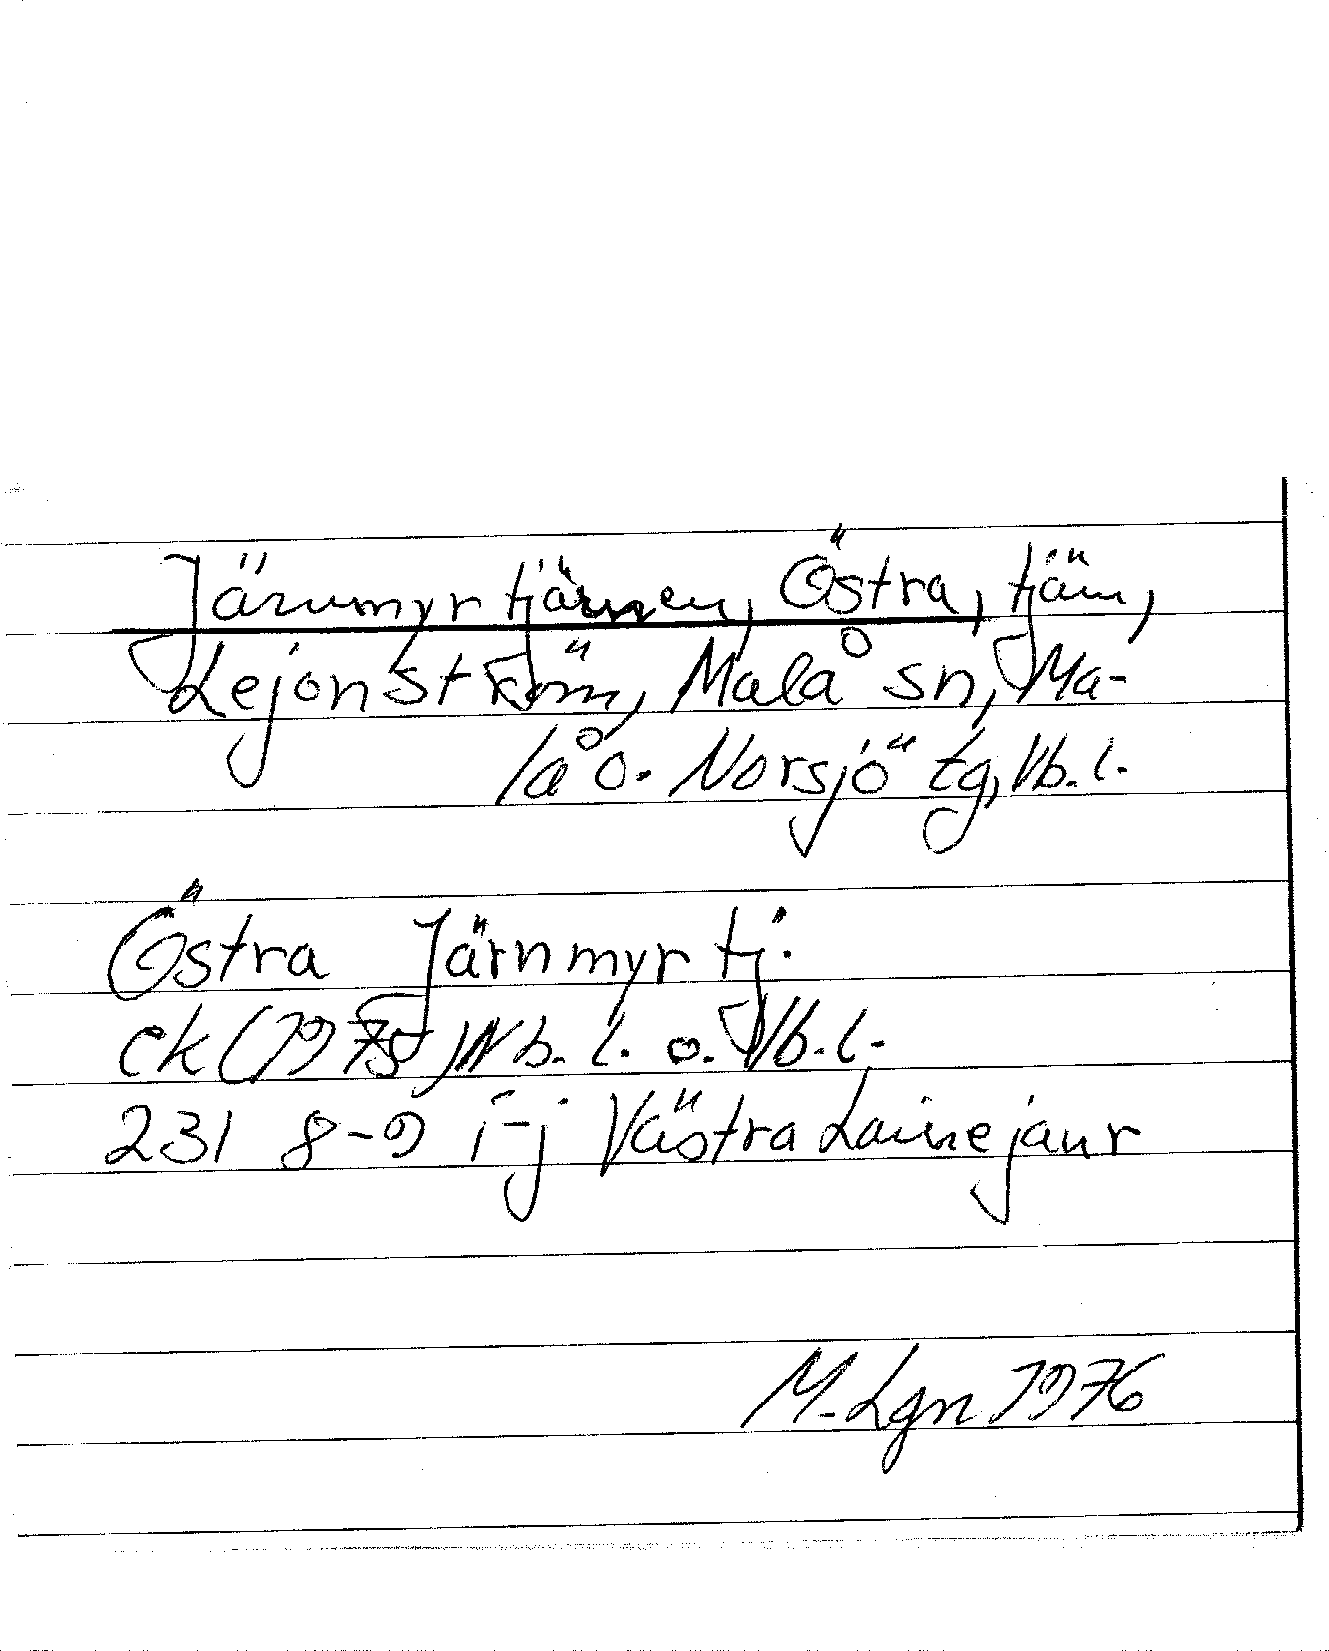 Järnmyrtjärnen, Östra, tjärn,
Lejonström, Malå sn, Ma-
lå o. Norsjö tg, Vb. l.
Östra Järnmyrtj.
ek (1975) Nb. l. o. Vb. l.
23I 8-9 i-j Västra Lainejaur
M. Lgn 1976